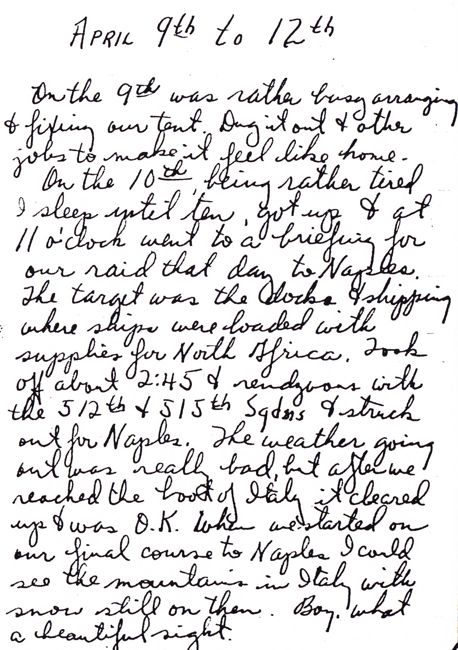 APRIL 9th to 12th
On the 9th was rather busy arranging
& fixing our tent. Dug it out & other
jobs to make it feel like home.
On the 10th, being rather tired
I sleep until ten, got up & at
11 o'clock went to a briefing for
our raid that day to Naples.
The target was the docks & shipping
where ships were loaded with
supplies for North Africa. Took
off about 2:45 & rendzvous with
the 512th & 515th Sqdns & struck
out for Naples. The weather going
out was really bad, but after we
reached the boot of Italy it cleared
up & was O.K. When we started on
our final course to Naples I could
see the mountains in Italy with
snow still on them. Boy, what
a beautiful sight.